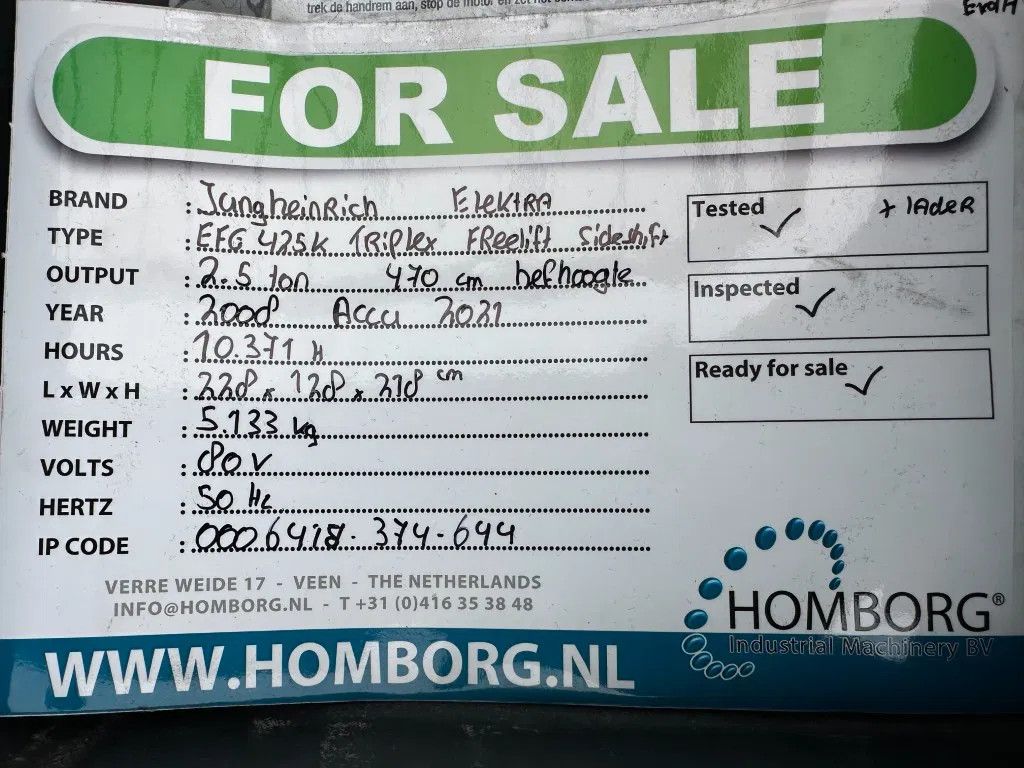 trek de handrem aan, stop de motor en zet het
FOR SALE
BRAND : Jungheinrich Elektra
TYPE : EFG 425K Triplex Freelift Sideshift
OUTPUT : 2.5 ton 470 cm hefhoogte
YEAR : 2008 Accu 2021
HOURS : 10.371 H
L x W x H : 228 x 128 x 218 cm
WEIGHT : 5.133 kg
VOLTS : 80 V
HERTZ : 50 Hz
IP CODE : 0006418 - 374 - 644
Tested ✓ + lader
Inspected ✓
Ready for sale ✓
VERRE WEIDE 17 - VEEN - THE NETHERLANDS
INFO@HOMBORG.NL - T +31 (0)416 35 38 48
HOMBORG®
Industrial Machinery BV
WWW.HOMBORG.NL